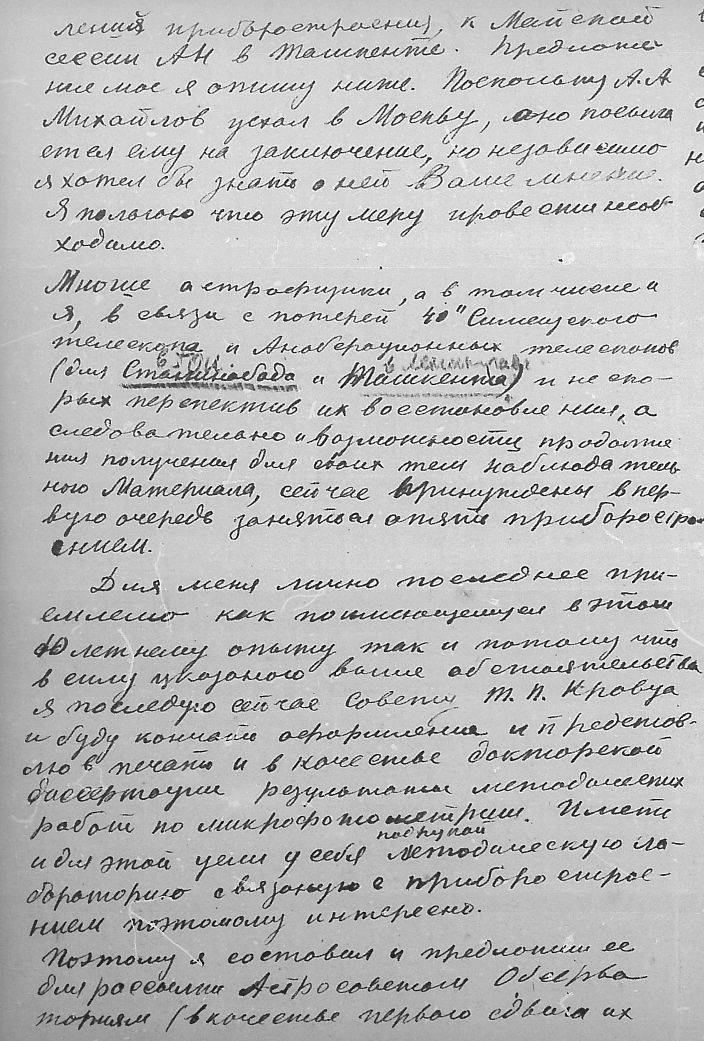 ления прибьюстроения, к Майской
сессии АН в Ташкенте. Предложе
ние мое я опишу ниже. Поскольку А.А
Михайлов уехал в Москву, оно посыла
ется ему на заключение, но независимо
я хотел бы знать о ней Ваше мнение.
Я полагаю что эту меру провести необ
ходимо.
Многие астрофизики, а в том числе и
я, в связи с потерей 40" Симеизского
телескопа и Анаберационных телескопов
в ГОИ в Ленинграде
(для Сталинабада и Ташкента) и не ско-
рых перспектив их восстановления, а
следовательно и возможности продолже
ния получения для своих тем наблюдатель
ного Материала, сейчас вринуждены в пер-
вую очередь заняться опять приборостро-
ением.
Для меня лично последнее при-
емлемо как по имеющемуся в этом
10 летнему опыту так и потому что
в силу указаного выше обстоятельства
я последую сейчас совету Т.П. Кравца
и буду кончать оформление и представ-
лю в печать и в качестве докторской
диссертации результаты методических
работ по микрофотометрии. Иметь
под рукой
и для этой цели у себя методическую ла-
бораторию связаную с приборострое-
нием поэтомому интересно.
Поэтому я составил и предложил ее
для рассылки Астросоветом Обсерва
ториям (в качестве первого сдвига их